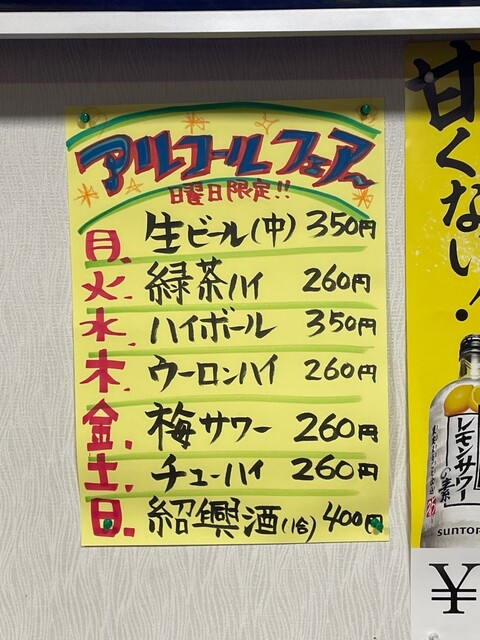 アルコールフェアー
日曜日限定!!
月. 生ビール(中) 350円
火. 緑茶ハイ 260円
水. ハイボール 350円
木. ウーロンハイ 260円
金. 梅サワー 260円
土. チューハイ 260円
日. 紹興酒(1合) 400円
甘くない!
レモンサワー
の素
SUNTOR
¥